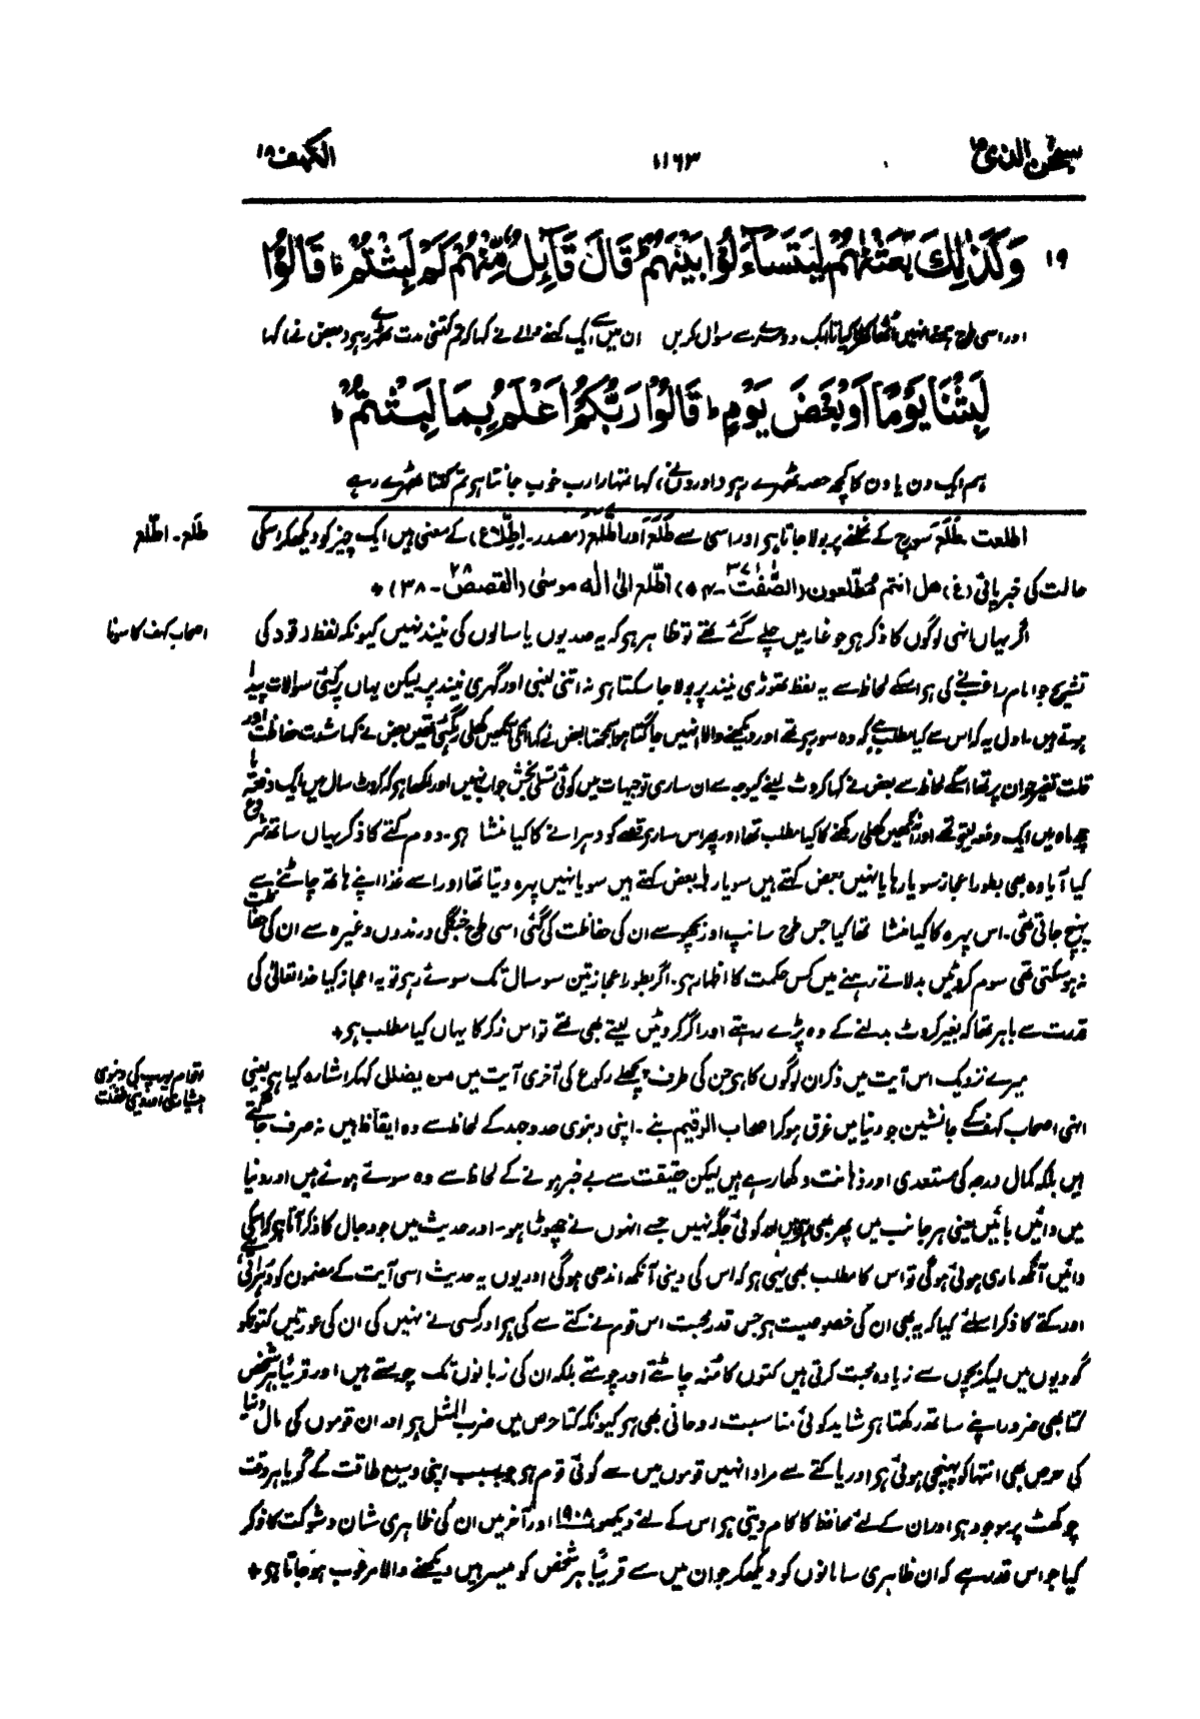 سبحٰن الذی ۱۵
۱۱۶۳
الکہف ۱۸
۱۹ وَکَذٰلِکَ بَعَثْنٰہُمْ لِیَتَسَآءَلُوْا بَیْنَہُمْ ؕ قَالَ قَآئِلٌ مِّنْہُمْ کَمْ لَبِثْتُمْ ؕ قَالُوْا
اور اسی طرح ہمنے انہیں اُٹھا کھڑا کیا تاایک دوسرے سے سوال کریں ان میں سے ایک کہنے والے نے کہا کہ تم کتنی مدت ٹھہرے رہو (بعض نے) کہا
لَبِثْنَا یَوْمًا اَوْ بَعْضَ یَوْمٍ ؕ قَالُوْا رَبُّکُمْ اَعْلَمُ بِمَا لَبِثْتُمْ ؕ
ہم ایک دن یا دن کا کچھ حصہ ٹھہرے رہو (اوروں نے) کہا تمہارا رب خوب جانتا ہو تم کتنا ٹھہرے رہے
طَلَع ۔ اطّلع
اطلعت ۔ طَلَعَ سورج کے نکلنے پر بولا جاتا ہو اور اسی سے طَلَعَ اور اطَّلَعَ (مصدر۔ اِطِّلاع) کے معنی ہیں ایک چیز کو دیکھکر اسکی
حالت کی خبر پائی (غ) ھل انتم مطّلعون (الصّٰفّٰت ۳۷ ۔ ۵۴) اطّلع الیٰ الٰہ موسیٰ (القصص ۲۸ ۔ ۳۸) +
اصحاب کہف کا سونا
اگر یہاں انہی لوگوں کا ذکر ہو جو غار میں چلے گئے تھے تو ظاہر ہو کہ یہ صدیوں یا سالوں کی نیند نہیں کیونکہ لفظ رقود کی
تشریح جو امام راغب نے کی ہو اسکے لحاظ سے یہ لفظ تھوڑی نیند پر بولا جا سکتا ہو نہ اتنی لمبی اور گہری نیند پر لیکن یہاں پر کئی سوالات پیدا
ہوتے ہیں۔ اول یہ کہ اس سے کیا مطلب ہے کہ وہ سو رہے تھے اور دیکھنے والا انہیں جاگتا ہوا سمجھتا بعض نے کہا انکی آنکھیں کھلی رہگئی تھیں بعض نے کہا شدت حفاظت اور
قلت تغیر جو ان پر تھا اسکے لحاظ سے بعض نے کہا کروٹ لینے کیوجہ سے ان ساری توجیہات میں کوئی تسلی بخش جواب نہیں اور لکھا ہو کہ کروٹ سال میں ایک دفعہ یا
چھ ماہ میں ایک دفعہ لیتے تھے اور آنکھیں کھلی رکھنے کا کیا مطلب تھا اور پھر اس سارے قصے کو دہرانے کا کیا منشا ہو۔ دوم کتے کا ذکر یہاں ساتھ شروع
کیا آیا وہ بھی بطور اعجاز سویا رہا یا نہیں بعض کہتے ہیں سویا رہا بعض کہتے ہیں سویا نہیں پہرہ دیتا تھا اور اسے غذا اپنے ہاتھ چاٹنے سے
پہنچ جاتی تھی۔ اس پہرہ کا کیا منشا تھا کیا جس طرح سانپ اور بچھو سے ان کی حفاظت کی گئی اسی طرح جنگلی درندوں وغیرہ سے ان کی حفاظت
نہ ہو سکتی تھی سوم کروٹیں بدلاتے رہنے میں کس حکمت کا اظہار ہو۔ اگر بطور اعجاز تین سو سال تک سوئے رہو تو یہ اعجاز کیا خدا تعالیٰ کی
قدرت سے باہر تھا کہ بغیر کروٹ بدلنے کے وہ پڑے رہتے اور اگر کروٹیں لیتے بھی تھے تو اس ذکر کا یہاں کیا مطلب ہو +
اقوام یورپ کی دنیوی
ہشیاری اور دینی غفلت
میرے نزدیک اس آیت میں ذکر ان لوگوں کا ہو جن کی طرف پچھلے رکوع کی آخری آیت میں من یضلل کہکر اشارہ کیا ہو یعنی
انہی اصحاب کہف کے جانشین جو دنیا میں غرق ہو کر اصحاب الرقیم بنے۔ اپنی دنیوی جدوجہد کے لحاظ سے وہ ایقاظ ہیں نہ صرف جاگتے
ہیں بلکہ کمال درجہ کی مستعدی اور ذہانت دکھا رہے ہیں لیکن حقیقت سے بے خبر ہونے کے لحاظ سے وہ سوئے ہوئے ہیں اور دنیا
میں دائیں بائیں یعنی ہر جانب میں پھر بھی رہے ہیں اور کوئی جگہ نہیں جسے انہوں نے چھوڑا ہو۔ اور حدیث میں جو دجال کا ذکر آتا ہو کہ اسکی
دائیں آنکھ ماری ہوئی ہوگی تو اس کا مطلب بھی یہی ہو کہ اس کی دینی آنکھ اندھی ہوگی اور یوں یہ حدیث اسی آیت کے مضمون کو دہراتی ہے
اور کتے کا ذکر اسلئے کیا کہ یہ بھی ان کی خصوصیت ہو جس قدر محبت اس قوم نے کتے سے کی ہو اور کسی نے نہیں کی ان کی عورتیں کتوں کو
گودیوں میں لیکر بچوں سے زیادہ محبت کرتی ہیں کتوں کا مُنہ چاٹتے اور چومتے بلکہ ان کی زبانوں تک چوستے ہیں اور قریباً ہر شخص
کتا بھی ضرور اپنے ساتھ رکھتا ہو شاید کوئی مناسبت روحانی بھی ہو کیونکہ کتا حرص میں ضرب المثل ہو اور ان قوموں کی مال دنیا
کی حرص بھی انتہا کو پہنچی ہوئی ہو اور یا کتے سے مراد انہیں قوموں میں سے کوئی قوم ہو جو بسبب اپنی وسیع طاقت کے گویا ہر وقت
چوکھٹ پر موجود ہو اور ان کے لئے محافظ کا کام دیتی ہو اس کے لئے دیکھو ۱۹۰۸ اور آخر میں ان کی ظاہری شان و شوکت کا ذکر
کیا جو اس قدر ہے کہ ان ظاہری سامانوں کو دیکھکر جو ان میں سے قریباً ہر شخص کو میسر ہیں دیکھنے والا مرعوب ہو جاتا ہو +